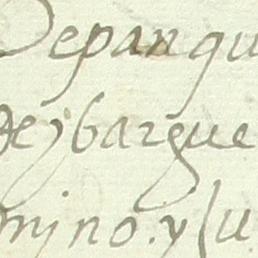 Depanqu
Deybargue
mino. y su